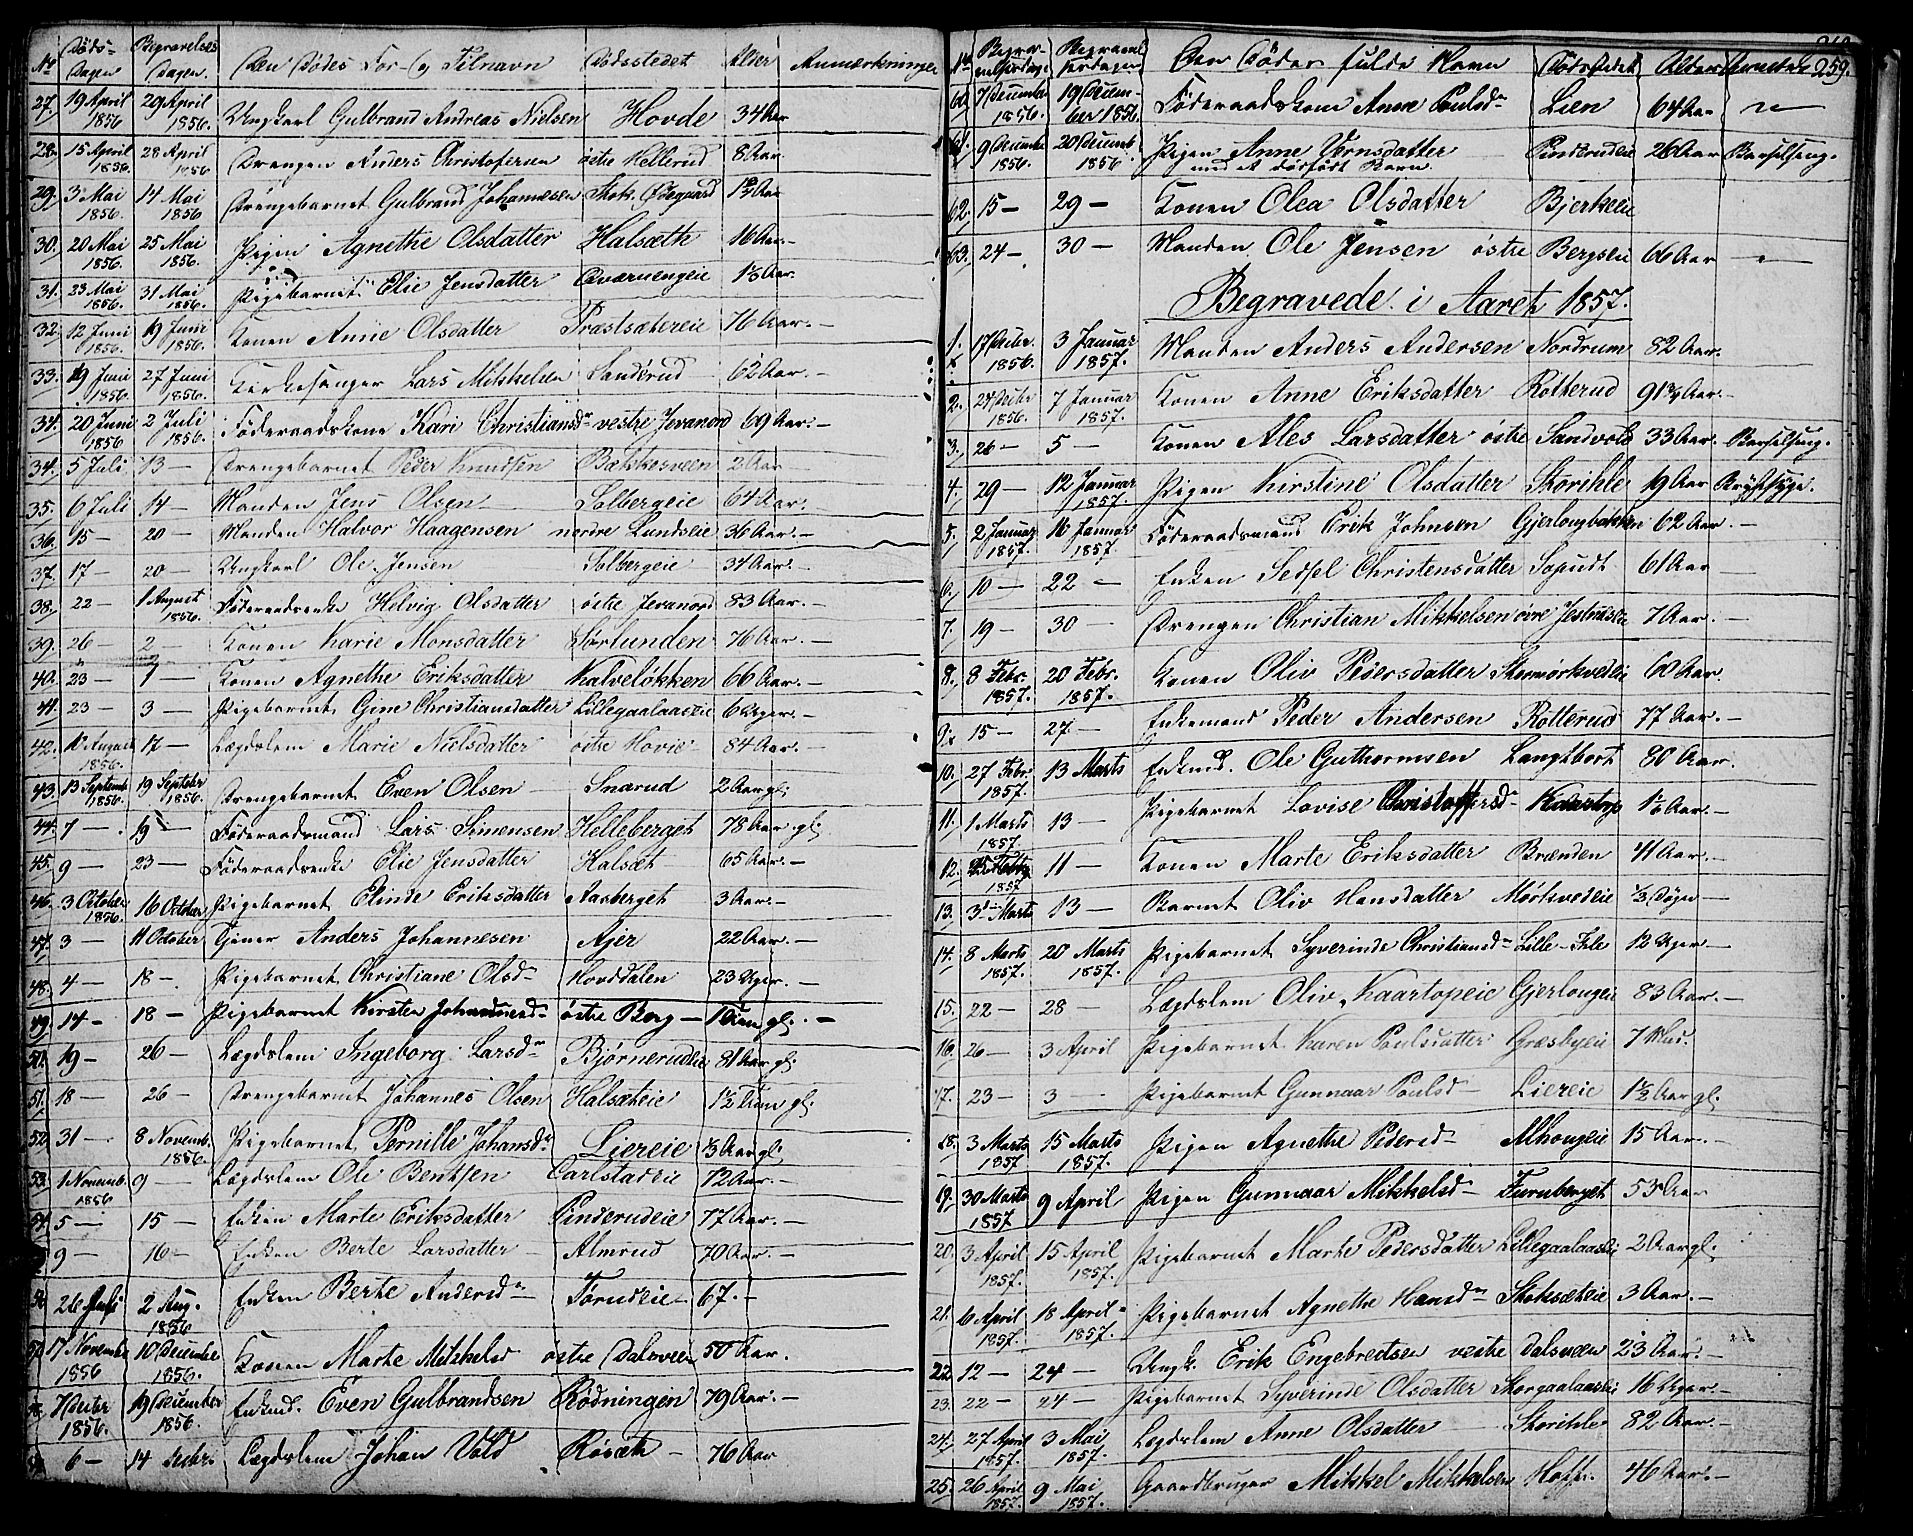 No Døds- Dagen Begravelses Dagen. Den Dødes For- og Tilnavn Dødsstedet Alder Anmærkninger
27. 19 April 1856 29 April 1856. Ungkarl Gulbrand Andreas Nielsen Hovde 34 Aar
28. 15 April 1856 28 April 1856 Drengen Anders Christofersen østre Hellerud 8 Aar.
29. 3 Mai 1856. 14 Mai 1856 Drengebarnet Gulbrand Johannesen Skok. Ødegaard Aar
30. 20 Mai 1856. 25 Mai 1856. Pigen Agnethe Olsdatter Halsæth 16 Aar.
31. 23 Mai 1856. 31 Mai 1856. Pigebarnet Elie Jensdatter Qværnengeie Aar.
32. 12 Juni 1856. 19 Juni 1856. Konen Anne Olsdatter Præstsætereie 76 Aar. —
33. 19 Juni 1856. 27 Juni 1856. Kirkesanger Lars Mikkelsen Sanderud 62 Aar. —
34. 20 Juni 1856 2 Juli 1856. Føderaadskone Kari Christiansdr vestre Jevanord 69 Aar. —
34. 5 Juli 13 — Drengebarnet Peder Knudsen Bækkesveen 2 Aar
35. 6 Juli 14 — Manden Jens Olsen Solbergeie 64 Aar.
36. 15 — 20 — Manden Halvor Haagensen nordre Lundseie 36 Aar. —
37. 17 — 20 — Ungkarl Ole Jensen Solbergeie 34 Aar. —
38. 22 — 1 August 1856. Føderaadsenke Helvig Olsdatter østre Jevanord 83 Aar. —
39. 26 — 2 — Konen Karie Monsdatter Sørlunden 76 Aar. —
40. 23 — 1 — Konen Agnethe Eriksdatter Kalveløkken 66 Aar. —
41. 23 — 3 — Pigebarnet Gine Christiansdatter Lillegaalaaseie 6 Uger. —
42. August 1856. 17 — Lægdslem Marie Nielsdatter østre Hovie 84 Aar. —
43. 13 Septemb 1856. 19 Septbr 1856. Drengebarnet Even Olsen Snarud 2 Aar gl.
44. 7 — 19 — Føderaadsmand Lars Simensen Helleberget 78 Aar gl.
45. 9 — 23 — Føderaadsenke Elie Jensdatter Halsæt 65 Aar. —
46. 3 October 1856. 16 October Pigebarnet Elinde Eriksdatter Aasberget 3 Aar. —
47. 3 — 11 October Tjener Anders Johannesen Ajer 22 Aar. —
48. 4 — 18 — Pigebarnet Christiane Olsd— Hovddalen 23 Uger. —
49. 14 — 18 — Pigebarnet Kirsten Johannesd— østre Berg — gl. —
50. 19 — 26 — Lægdslem Ingeborg Larsdr Bjørnerudeie 81 Aar gl.
51. 18 — 26 — Drengebarnet Johannes Olsen Halsæteie 1½ gl.
52. 31 — 8 Novemb. 1856. Pigebarnet Pernille Johansdr Liereie Aar gl.
53. 1 Novemb. 1856 9 — Lægdslem Ole Bentsen Carlstadeie 72 Aar. —
54. 5 — 15 — Enken Marte Eriksdatter Pinderudeie 77 Aar. —
9 — 16 — Enken Berte Larsdatter Almrud 70 Aar. —
26 Juli 2 Aug. 1856 Enken Berte Andersdr Tørudeie 67 —
17 Novembr 1856 10 Decembr 1856. Konen Marte Mikkelsd østre Dalsveen 50 Aar.
7 Decbr 1856. 19 December 1856. Enkmd. Even Gulbrandsen Rødningen 79 Aar. —
6 — 14 Decbr. Lægdslem Johan Vold Røsæth — 76 Aar
259.
No Den Dødes fulde Navn Dødsstedet Alder
60. 7 Decemb 1856. 19 Decem- ber 1856. Føderaadskone Anne Poulsdr Lien 64 Aar
61. 9 Decemb 1856. 20 Decemb. 1856 Pigen Anne Vernsdatter med et dødfødt Barn. Pinderudeie 26 Aar Barselseng.
62. 15 — 29 — Konen Olea Olsdatter Bjerkeeie
63. 24 — 30 — Manden Ole Jensen østre Bergseie 66 Aar —
Begravede i Aaret 1857.
1. 17 Decbr. 1856. 3 Januar 1857. Manden Anders Andersen Nordrum 82 Aar.
2. 24 Decbr 1856. 7 Januar 1857. Konen Anne Eriksdatter Rotterud Aar. —
3. 26 — 5 — Konen Ales Larsdatter østre Sandvold 33 Aar. Barselseng.
4. 29 — 12 Januar 1857. Pigen Kirstine Olsdatter Skorikle 19 Aar Brystsyge.
5. 2 Januar 1857. 16 Januar 1857. Føderaadsmand Erik Johnsen Gjerlougbakken 62 Aar. —
6. 10 — 22 — Enken Sedsel Christensdatter Sopudt 61 Aar —
7. 19 — 30 — Drengen Christian Mikkelsen øvre 7 Aar. —
8. 8 Febr. 1857. 20 Febr. 1857. Konen Oliv Pedersdatter Stormørkvedeie 60 Aar.
9. 15 — 27. — Enkemand Peder Andersen Rotterud 77 Aar. —
10. 27 Febr. 1857. 13 Marts Enkmd. Ole Guthormsen Langtbort 80 Aar.
11. 1 Marts 1857. 13 — Pigebarnet Lovise Christoffersdr Aar. —
12. 1857 11 — Konen Marte Eriksdatter Brænden 41 Aar. —
13. 3 Marts 13 — Barnet Oliv Hansdatter Mørkvedeie ⅓ Døgn —
14. 8 Marts 1857. 20 Marts 1857. Pigebarnet Syverinde Christiansdr Lille-Ihle 12 Uger —
15. 22 — 28 Lægdslem Oliv Kaartopeie Gjerlougeie 83 Aar. —
16. 26 — 3 April Pigebarnet Karen Poulsdatter Græsbyeie 7 Md.
17. 23 — 3 — Pigebarnet Gunnaar Poulsd— Liereie 1½ Aar gl.
18. 3 Marts 1857 15 Marts 1857. Pigen Agnethe Pedersd— Alhougeie 15 Aar. —
19. 30 Marts 1857 9 April Pigen Gunnaar Mikkelsd— Furuberget 53 Aar
20. 3 April 1857. 15 April 1857. Pigebarnet Marte Pedersdatter Lillegaalaaseie 2 Aar gl.
21. 6 April 1857. 18 April 1857. Pigebarnet Agnethe Hansdr Stoksæteie 3 Aar. —
22. 12 — 24 — Ungk. Erik Engebretsen vestre Dalsveen 23 Aar. —
23. 22 — 24 — Pigebarnet Syverinde Olsdatter Storgaalaaseie 16 Uger. —
24. 27 April 1857. 3 Mai 1857. Lægdslem Anne Olsdatter Skorikle 82 Aar. —
25. 26 April 1857. 9 Mai 1857. Gaardbruger Mikkel Mikkelsen Hoff. 46 Aar. —